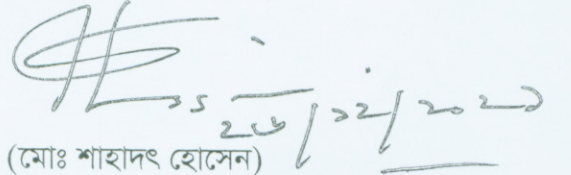 ২৬/১২/২০২১
(মোঃ শাহাদৎ হোসেন)